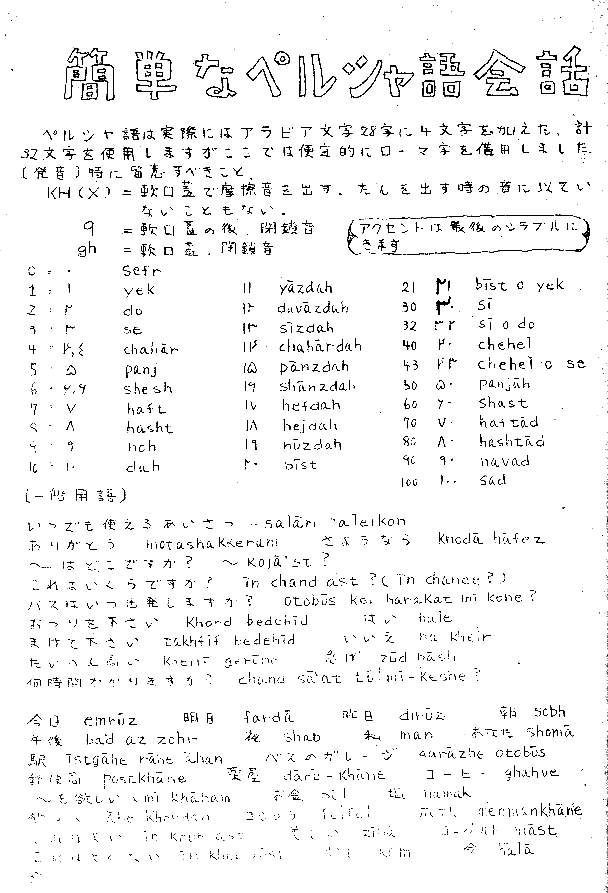 簡単なペルシャ語会話
ペルシャ語は実際にはアラビア文字28字に4文字を加えた、計
32文字を使用しますがここでは便宜的にローマ字を借用しました。
(発音)特に留意すべきこと。
KH(X) = 軟口蓋で摩擦音を出す。たんを出す時の音に似てい
ないこともない。
q = 軟口蓋の後、閉鎖音
gh = 軟口蓋、閉鎖音
アクセントは最後のシラブルに
きます
0 = ・ sefr
1 = ۱ yek ۱۱ yāzdah 21 ۲۱ bīst o yek
2 = ۲ do ۱۲ davāzdah 30 ۳۰ sī
3 = ۳ se ۱۳ sīzdah 32 ۳۲ sī o do
4 = ۴,٤ chahār ۱۴ chahārdah 40 ۴۰ chehel
5 = ۵ panj ۱۵ pānzdah 43 ۴۳ chehel o se
6 = ۶,۶ shesh ۱۶ shānzdah 50 ۵۰ panjāh
7 = ۷ haft ۱۷ hefdah 60 ۶۰ shast
8 = ۸ hasht ۱۸ hejdah 70 ۷۰ haftād
9 = ۹ noh ۱۹ nūzdah 80 ۸۰ hashtād
10 = ۱۰ dah ۲۰ bīst 90 ۹۰ navad
100 ۱۰۰ sad
(一般用語)
いつでも使えるあいさつ salām aleikon
ありがとう motashakkeram さようなら Khodā hāfez
〜はどこですか? 〜 Kojā'st?
これはいくらですか? īn chand ast? (īn chance?)
バスはいつ出発しますか? otobūs kei harakat mī kone?
おつりを下さい Khord bedehīd はい bale
まけて下さい takhfīf bedehīd いいえ na kheir
たいへん高い Kheilī gerūne 急げ zūd bāsh
何時間かかりますか? chand sā'at tūl mī-keshe?
今日 emrūz 明日 fardā 昨日 dīrūz 朝 sobh
午後 ba'd az zohr 夜 shab 私 man あなた shomā
駅 īstgāhe rāhe āhan バスのガレージ gārāzhe otobūs
郵便局 postkhāne 薬屋 dārū-khāne コーヒー ghahve
〜を欲しい mī khāham お金 pūl 塩 namak
felfel
ast ヨーグルト māst
今 hālā